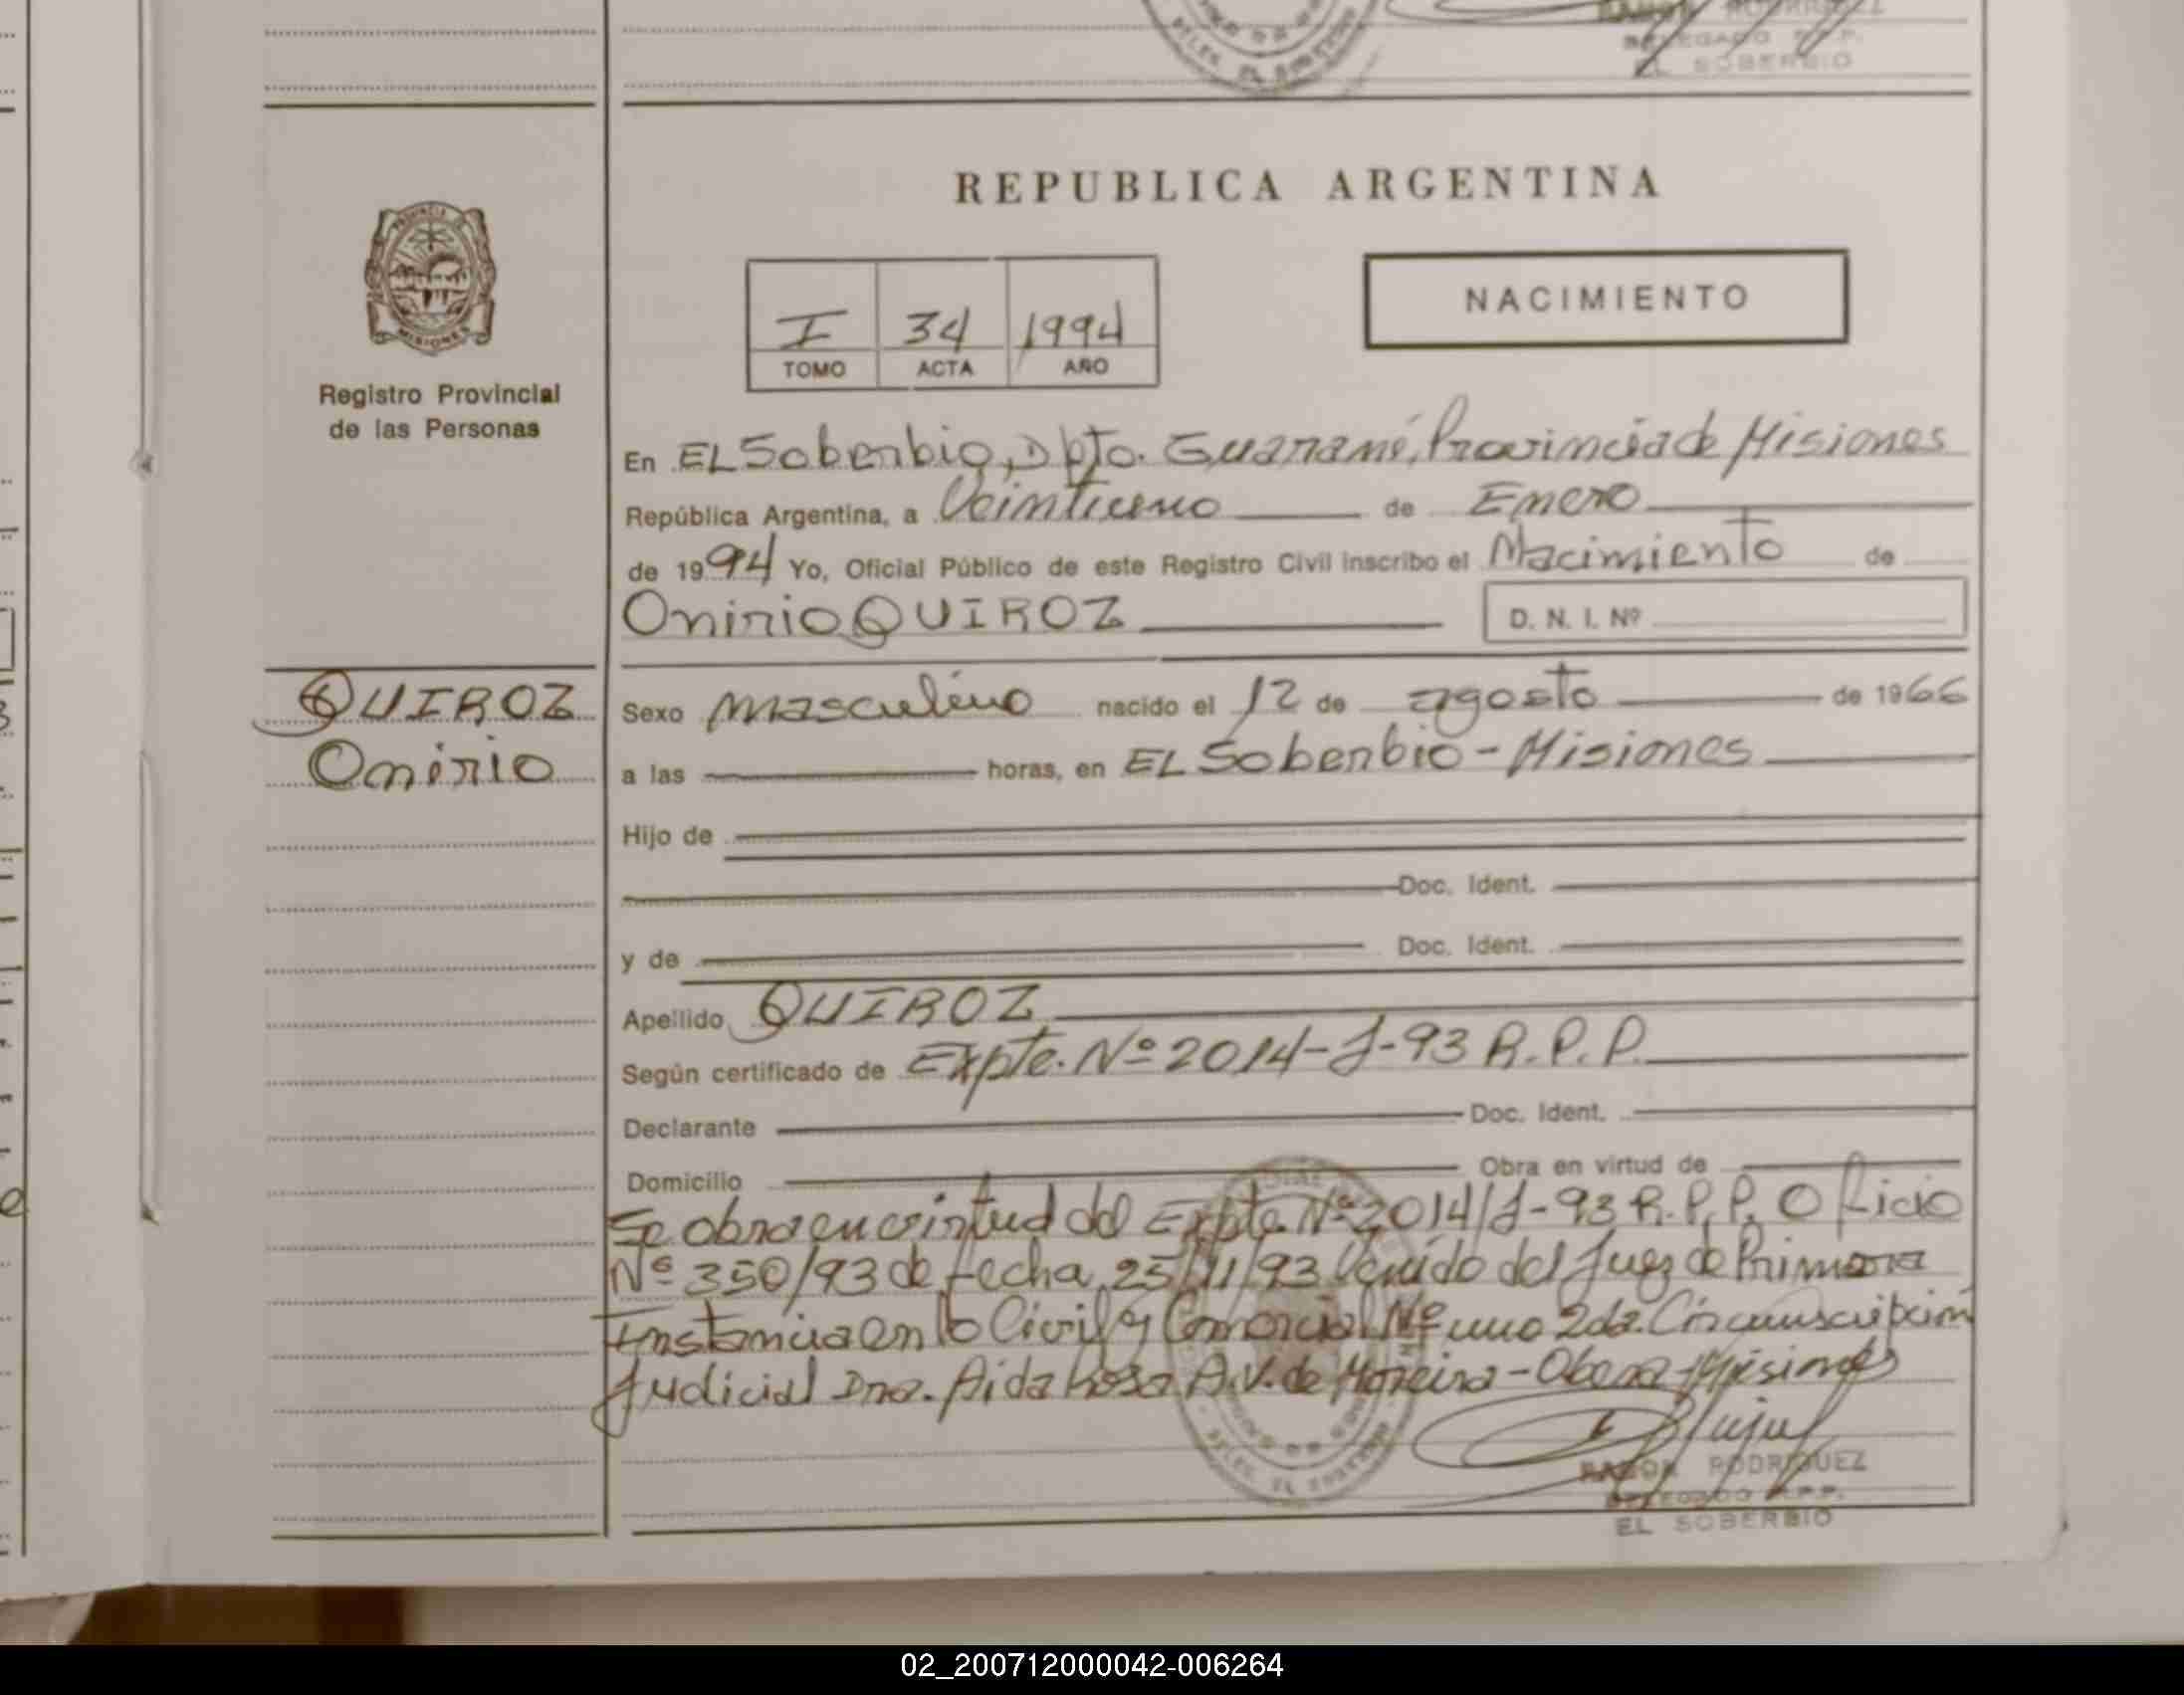 RAMON RODRIGUEZ
DELEGADO R.P.P.
EL SOBERBIO
REPUBLICA ARGENTINA
PROVINCIA DE
MISIONES
Registro Provincial
de las Personas
I 34 1994
TOMO ACTA AÑO
NACIMIENTO
En EL Soberbio, Dpto. Guaraní, Provincia de Misiones
República Argentina, a Veintiuno de Enero
de 1994 Yo, Oficial Público de este Registro Civil inscribo el Nacimiento de
Onirio QUIROZ D. N. I. Nº
QUIROZ
Onirio
Sexo masculino nacido el 12 de agosto de 1966
a las horas, en EL Soberbio - Misiones
Hijo de
Doc. Ident.
y de Doc. Ident.
Apellido QUIROZ
Según certificado de Expte. Nº 2014-J-93 R.P.P.
Declarante Doc. Ident.
Domicilio Obra en virtud de
Se obra en virtud del Expte. Nº 2014/J-93 R.P.P. Oficio
Nº 350/93 de fecha 25/11/93 Venido del Juez de Primera
Instancia en lo Civil y Comercial Nº uno 2da. Circunscripcion
Judicial Dra. Aida Rosa A.V. de Moreira - Obera - Misiones
RAMON RODRIGUEZ
DELEGADO R.P.P.
EL SOBERBIO
02_200712000042-006264